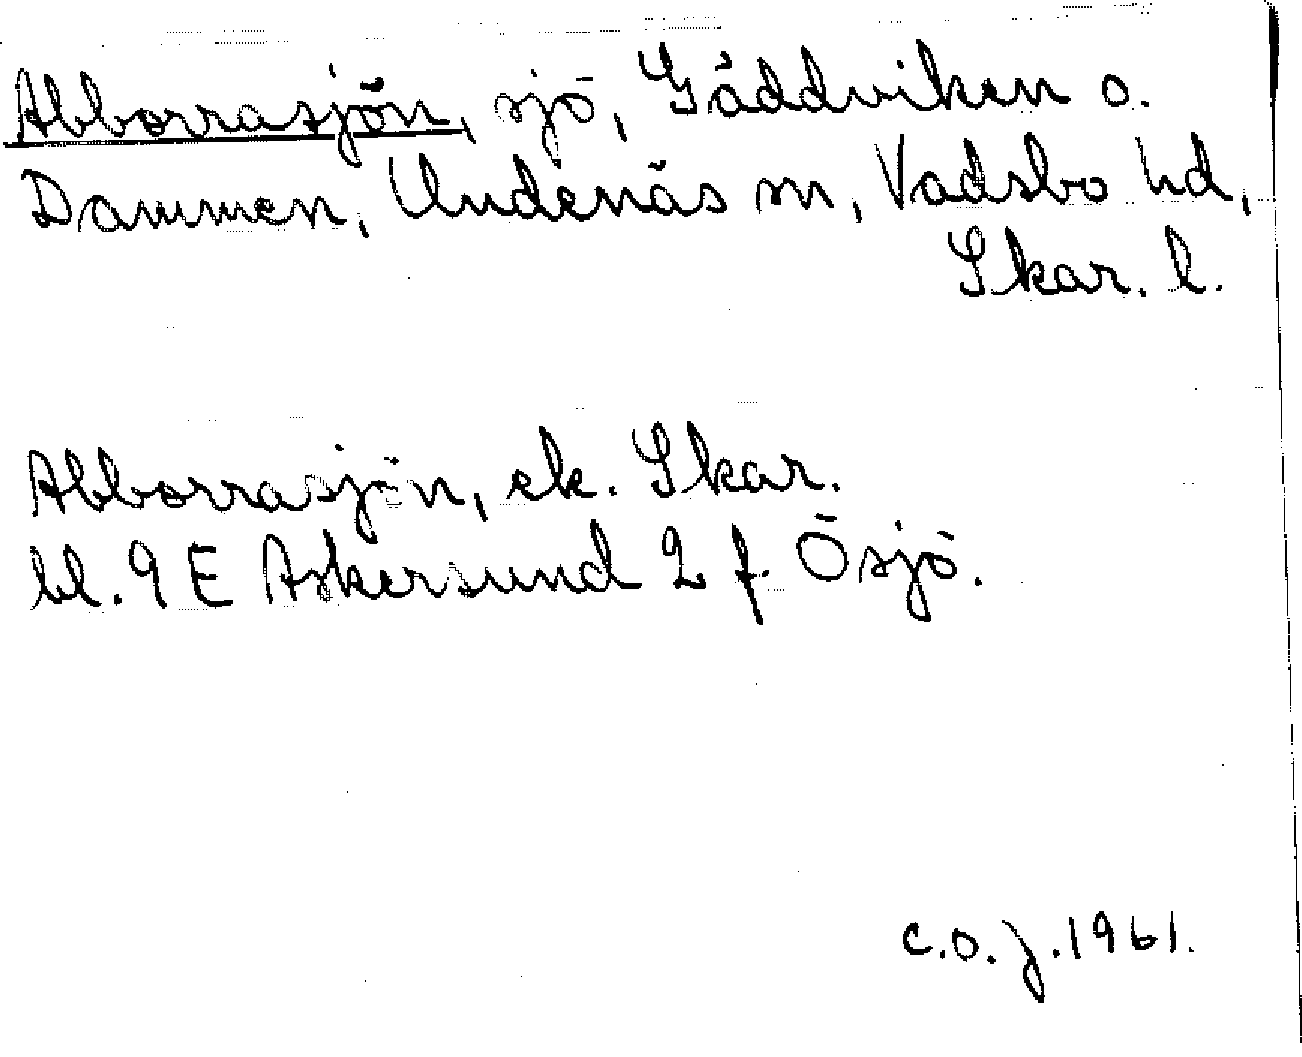 Abborrasjön, sjö, Gäddviken o.
Dammen, Undenäs sn, Vadsbo hd,
Skar. l.
Abborrasjön, ek. Skar.
bl. 9 E Askersund 2 f. Ösjö.
C.O.J. 1961.